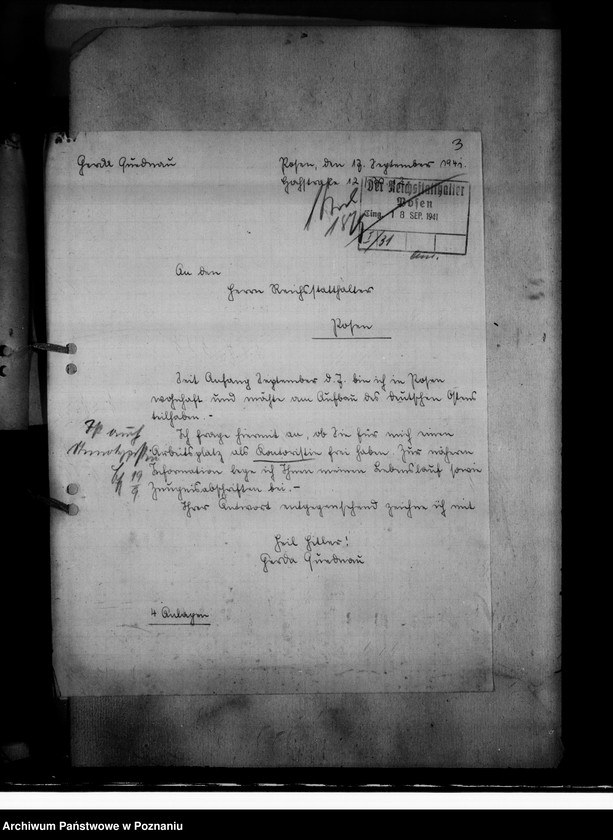 3
Gerda Quednau
Posen, den 13. September 1941.
Hochstraße 12
Der Reichsstatthalter
Posen
Eing. 18 SEP. 1941
I/31
An den
Herrn Reichsstatthalter
Posen
Seit Anfang September d. J. bin ich in Posen
wohnhaft und möchte am Aufbau des deutschen Ostens
teilhaben. -
Ich frage hiermit an, ob Sie für mich einen
Arbeitsplatz als Kontoristin frei haben. Zur nähern
Information lege ich Ihnen meinen Lebenslauf sowie
Zeugnisabschriften bei. -
Ihrer Antwort entgegensehend zeichne ich mit
Ist auch
19/9
Heil Hitler!
Gerda Quednau
4 Anlagen
Archiwum Państwowe w Poznaniu